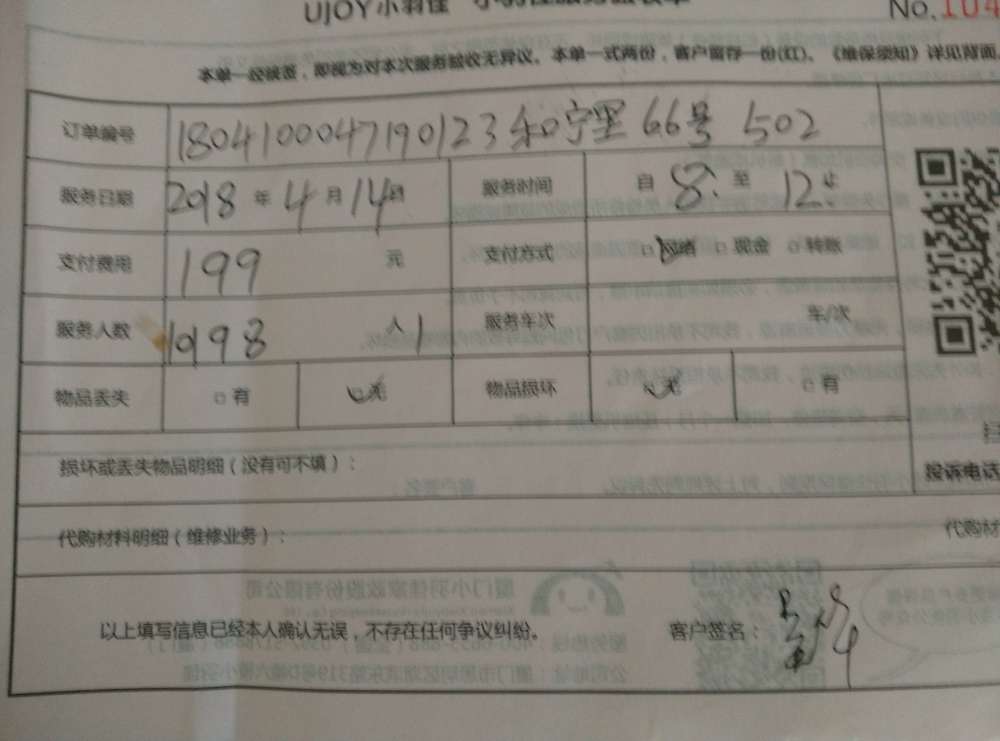 UJOY小羽佳 小羽佳服务验收单
No.104
本单一经核签，即视为对本次服务验收无异议。本单一式两份，客户留存一份(红)、《维保须知》详见背面
订单编号 180410004719 0123 和宁里66号 502
服务日期 2018 年 4 月 14 日 服务时间 自 8 至 12
支付费用 199 元 支付方式 □网络 □现金 □转账
服务人数 1998 人 1 服务车次 车/次
物品丢失 □有 □无 物品损坏 □无 □有
损坏或丢失物品明细（没有可不填）：
投诉电话
代购材料明细（维修业务）：
代购材
以上填写信息已经本人确认无误，不存在任何争议纠纷。 客户签名：